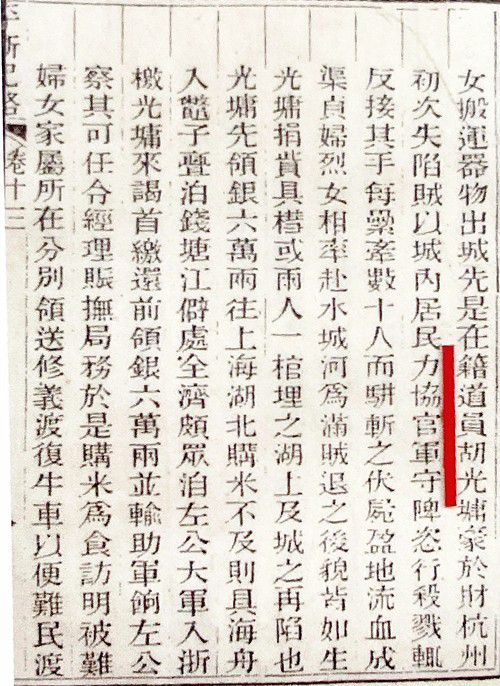 女搬運器物出城先是在籍道員胡光墉豪於財杭州
初次失陷賊以城內居民力協官軍守陴恣行殺戮輒
反接其手每纍牽數十人而駢斬之伏屍盈地流血成
渠貞婦烈女相率赴水城河為滿賊退之後貌皆如生
光墉捐貲具槥或兩人一棺埋之湖上及城之再陷也
光墉先領銀六萬兩往上海湖北購米不及則具海舟
入鼈子亹泊錢塘江僻處全濟頗眾洎左公大軍入浙
檄光墉來謁首繳還前領銀六萬兩並輸助軍餉左公
察其可任令經理賑撫局務於是購米為食訪明被難
婦女家屬所在分別領送修義渡復牛車以便難民渡
平浙紀略 卷十三